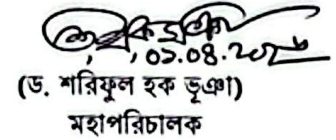 ০১.০৪.২০২৬
(ড. শরিফুল হক ভূঞা)
মহাপরিচালক